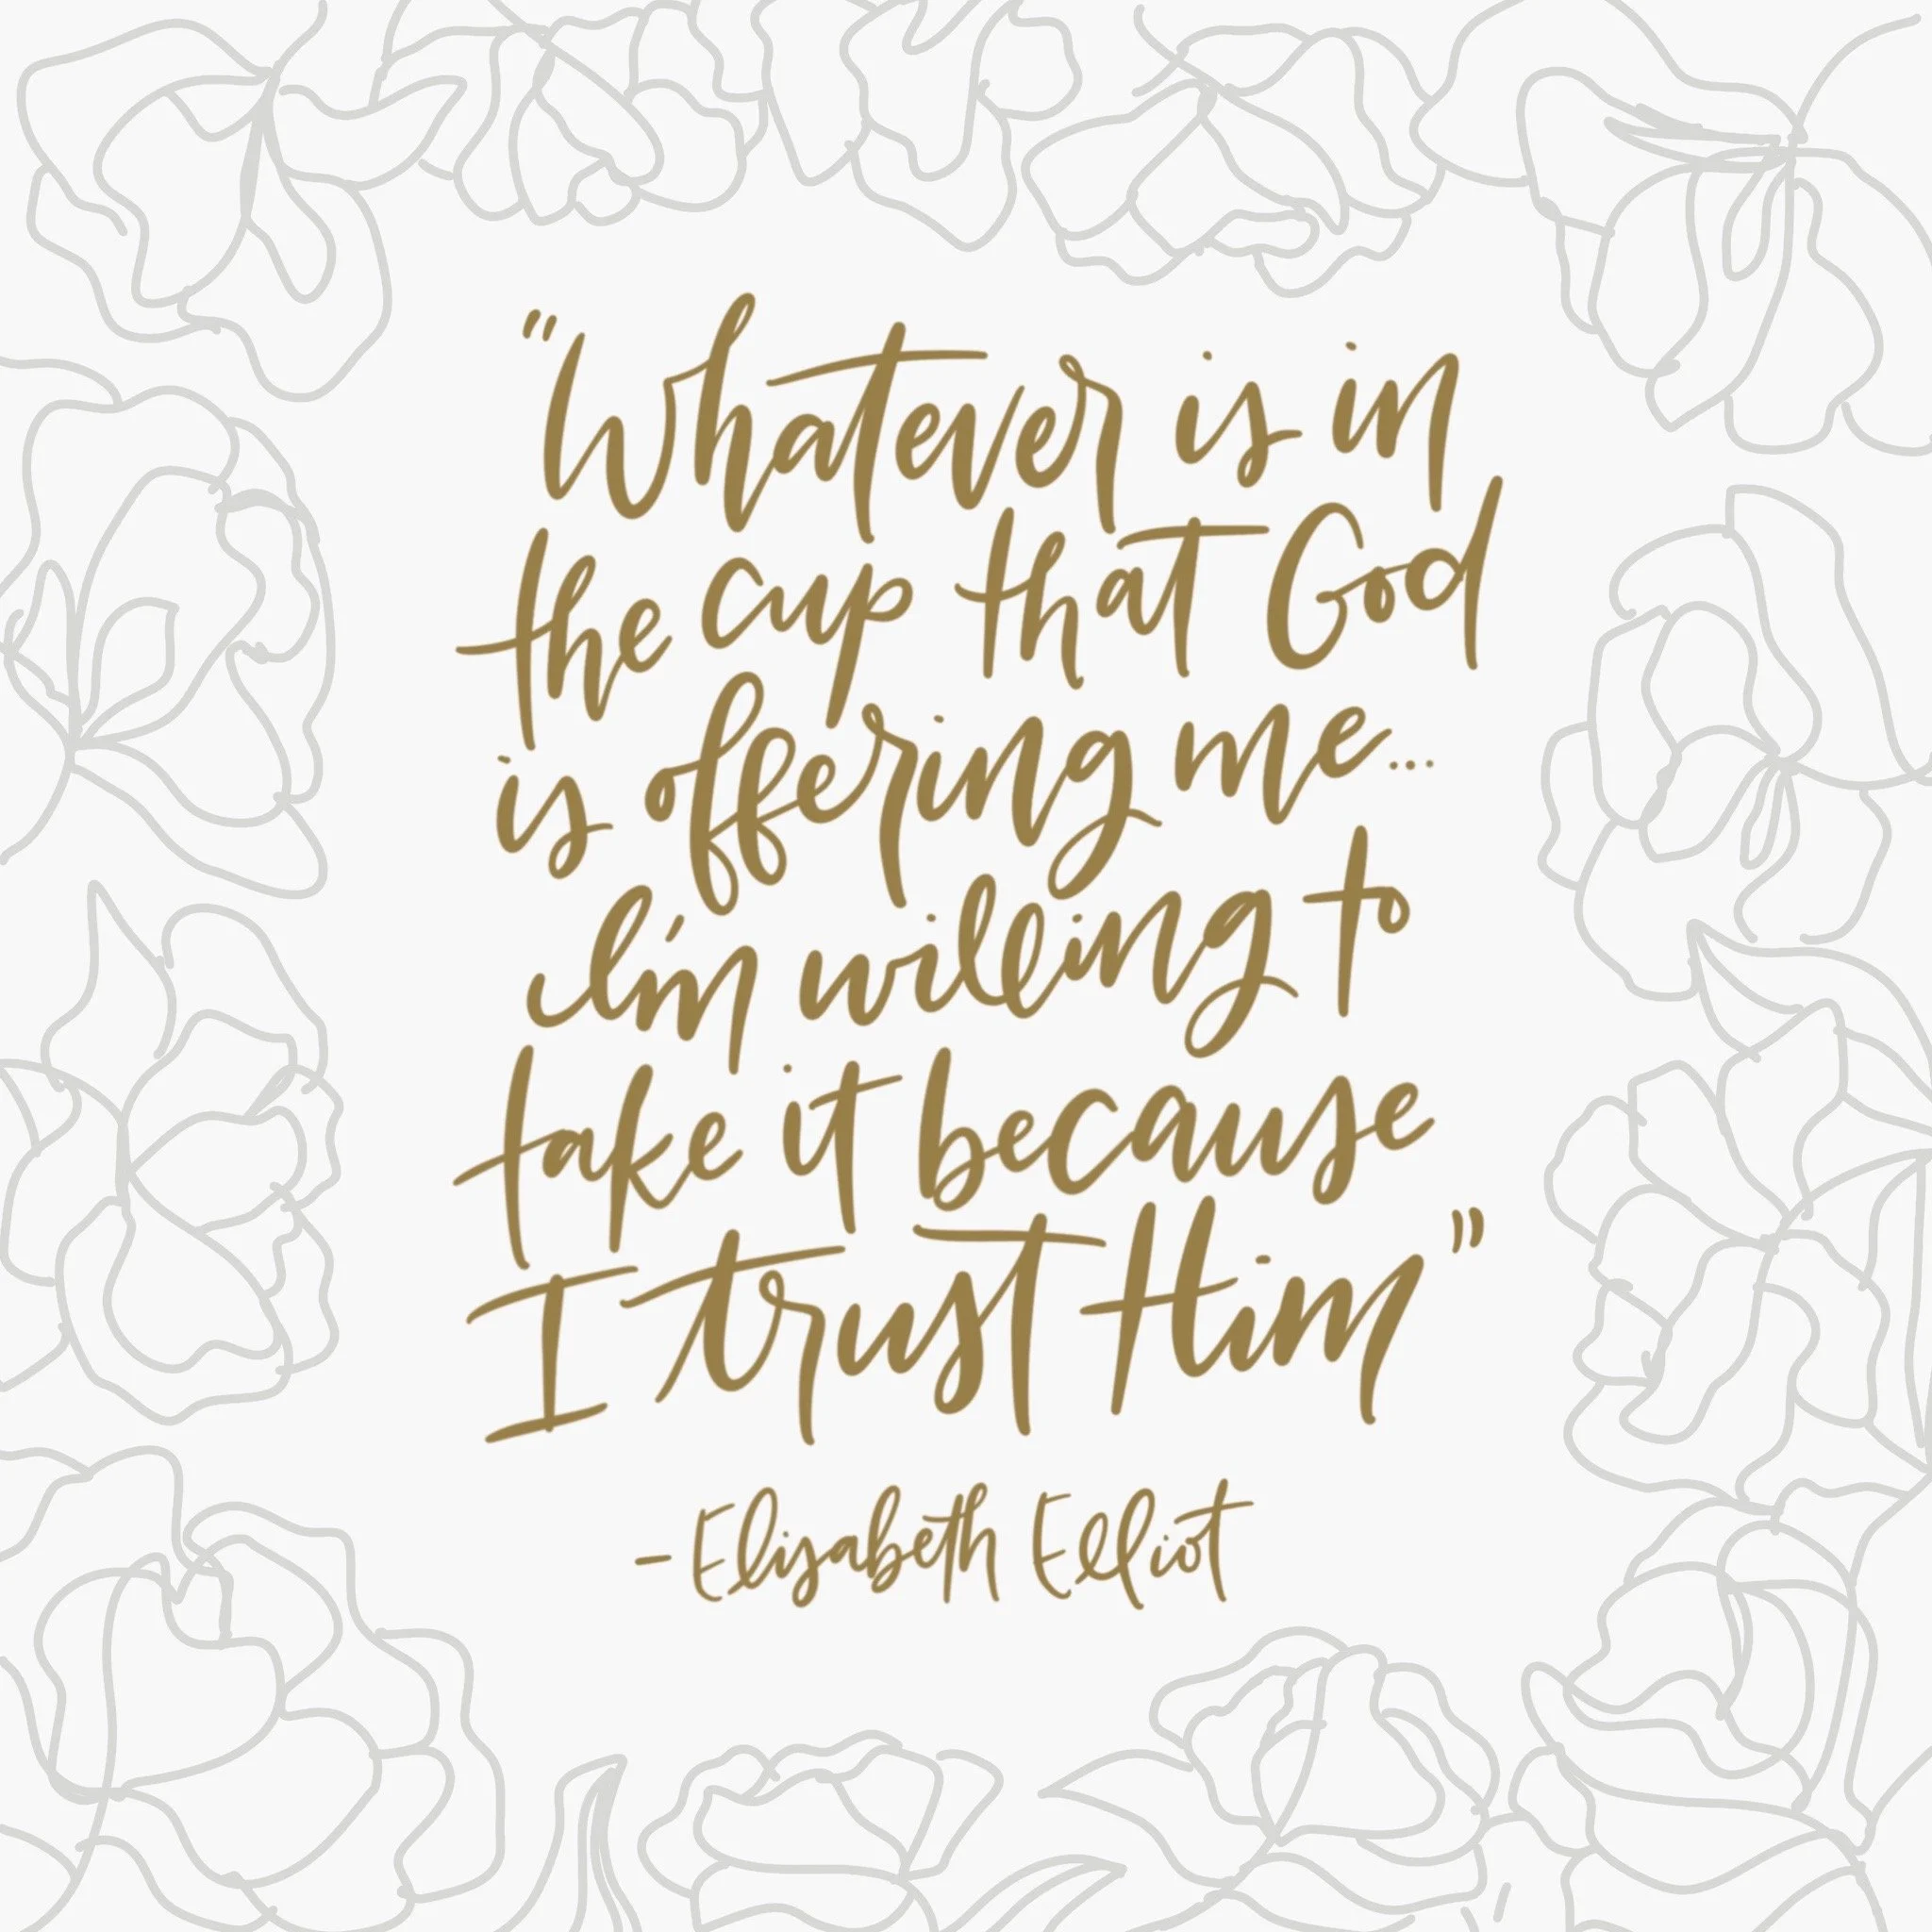 "Whatever is in
the cup that God
is offering me...
I'm willing to
take it because
I trust Him"
-Elizabeth Elliot